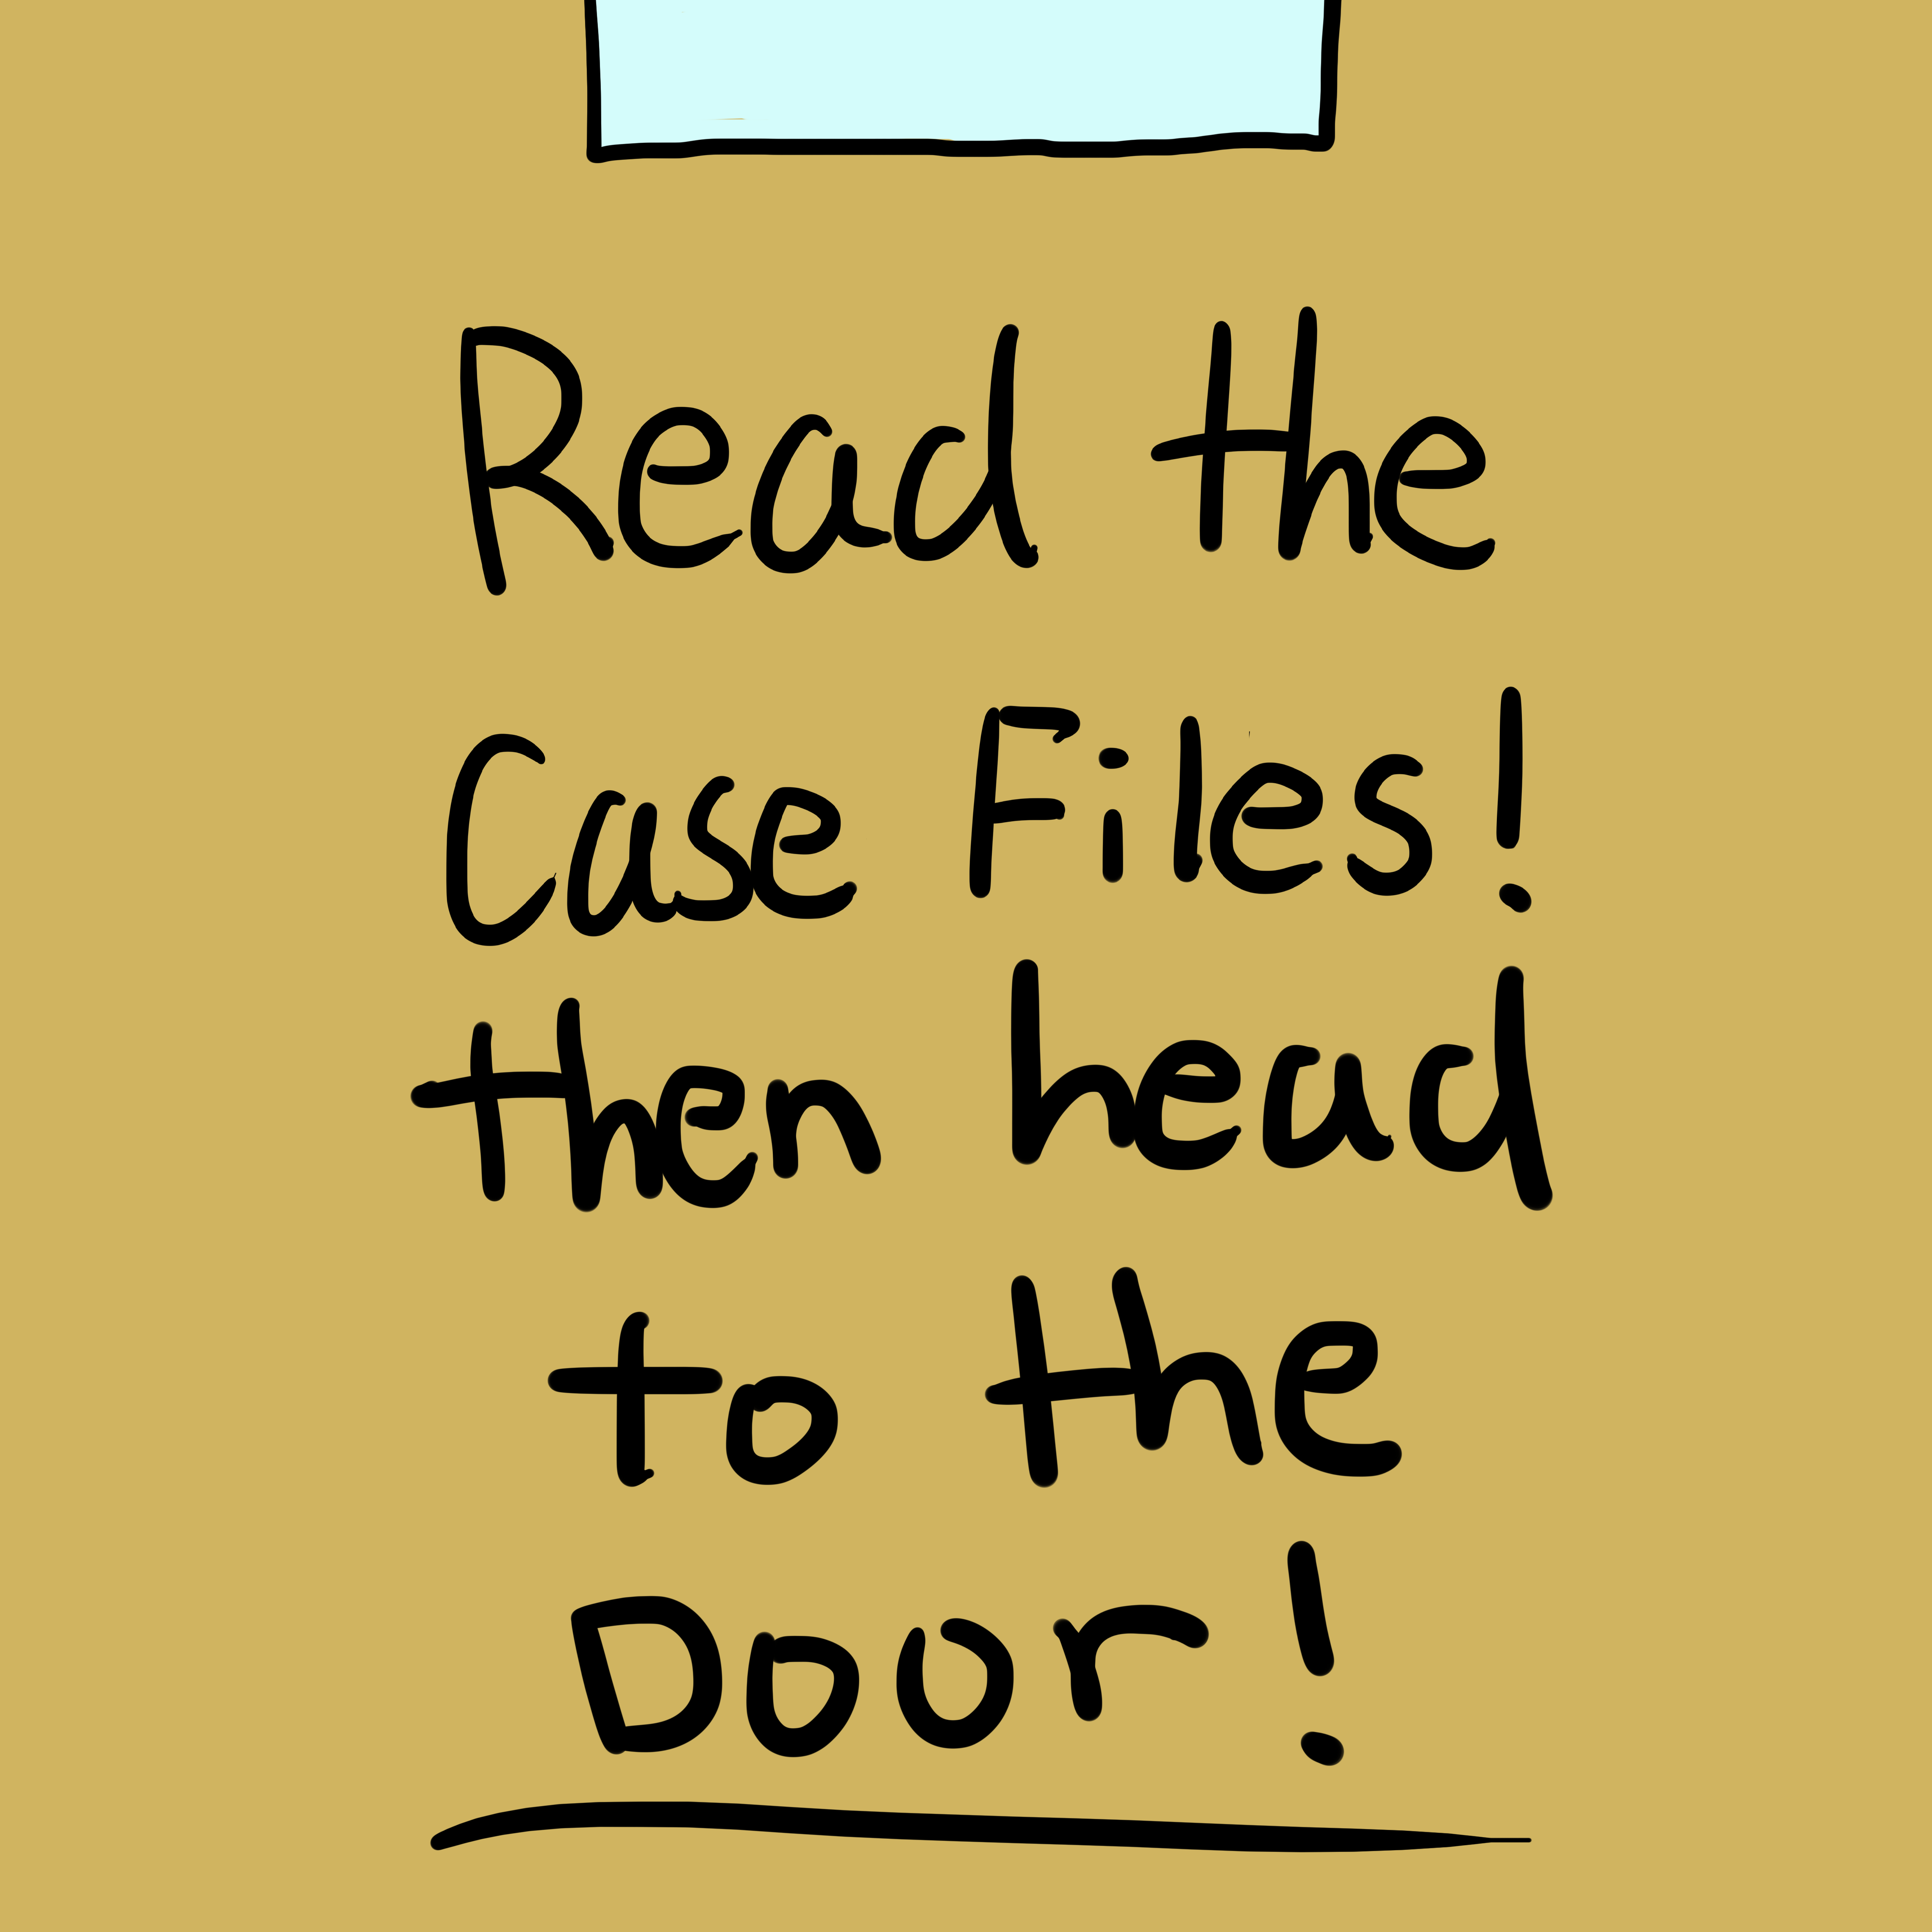 Read the
Case Files!
then head
to the
Door!